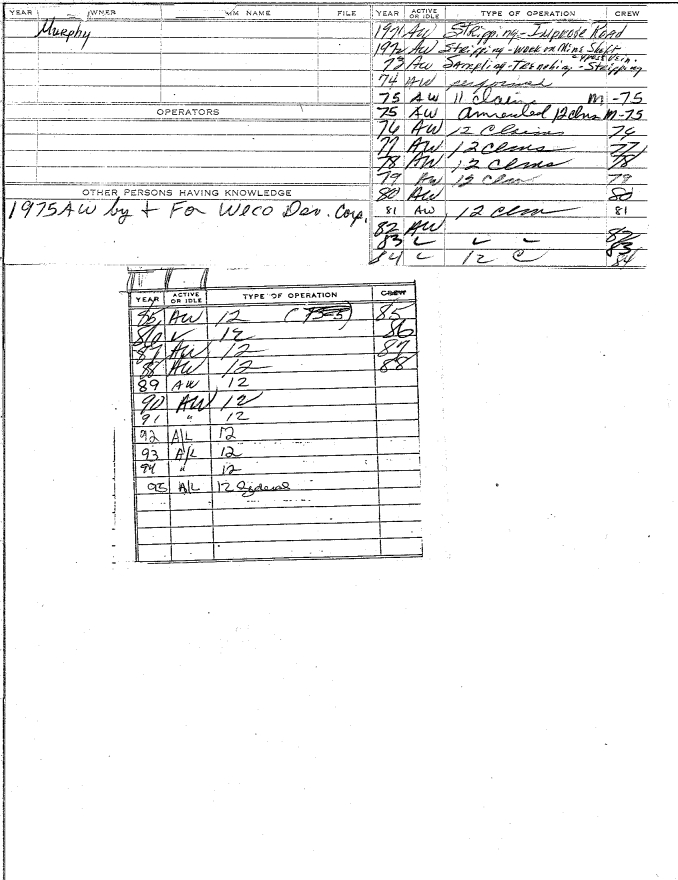 YEAR OWNER MM NAME FILE
Murphy
OPERATORS
OTHER PERSONS HAVING KNOWLEDGE
1975 AW by + For Weco Dev. Corp.
YEAR ACTIVE OR IDLE TYPE OF OPERATION CREW
1971 AW Stripping - Improve Road
1972 AW Stripping - work on Mine Shaft
73 AW Sampling - Trenching - Stripping
74 AW performed
75 AW 11 claim M-75
75 AW amended 12 clms M-75
76 AW 12 Claims 76
77 AW 12 clms 77
78 AW 12 clms 78
79 AW 12 clm 79
80 AW 80
81 AW 12 clm 81
82 AW 82
83 83
84 12 C 84
YEAR ACTIVE OR IDLE TYPE OF OPERATION CREW
85 AW 12 85
86 ✓ 12 86
87 AW 12 87
88 AW 12 88
89 AW 12
90 AW 12
91 " 12
92 A/L 12
93 A/L 12
94 " 12
95 A/L 12